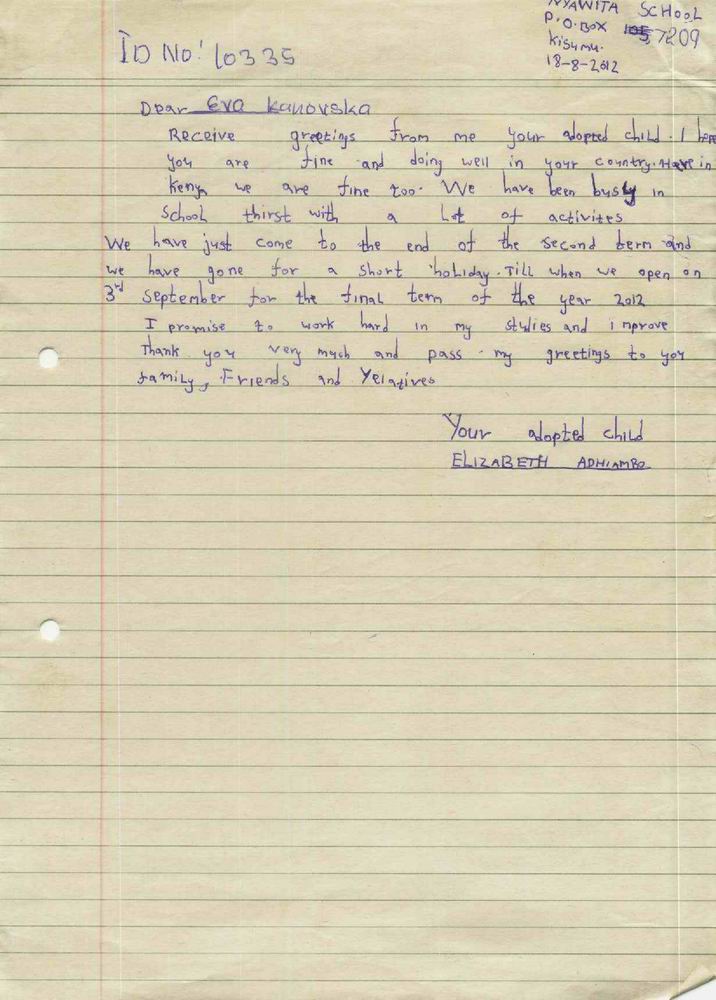 NYAWITA SCHOOL
P.O.BOX 7209
Kisumu.
18-8-2012
ID No: 10335
Dear Eva Kanovska
Receive greetings from me your adopted child. I hope
you are fine and doing well in your country. Here in
Kenya we are fine too. We have been busy in
School thirst with a lot of activites
We have just come to the end of the second term and
we have gone for a short holiday. Till when we open on
3rd September for the final term of the year 2012
I promise to work hard in my studies and improve
Thank you very much and pass my greetings to you
family, Friends and Yelatives
Your adopted child
ELIZABETH ADHIAMBO